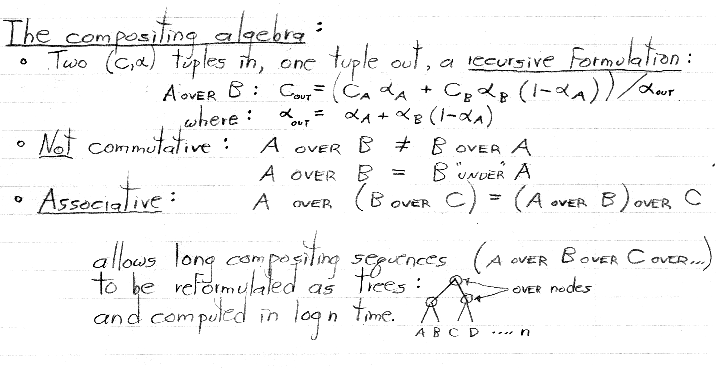 The compositing algebra:
• Two (C,α) tuples in, one tuple out, a recursive formulation:
A OVER B: C_OUT = (C_A α_A + C_B α_B (1-α_A))/α_OUT
where: α_OUT = α_A + α_B (1-α_A)
• Not commutative: A OVER B ≠ B OVER A
A OVER B = B "UNDER" A
• Associative: A OVER (B OVER C) = (A OVER B) OVER C
allows long compositing sequences (A OVER B OVER C OVER...)
to be reformulated as trees: OVER nodes
and computed in log n time.
A B C D .... n